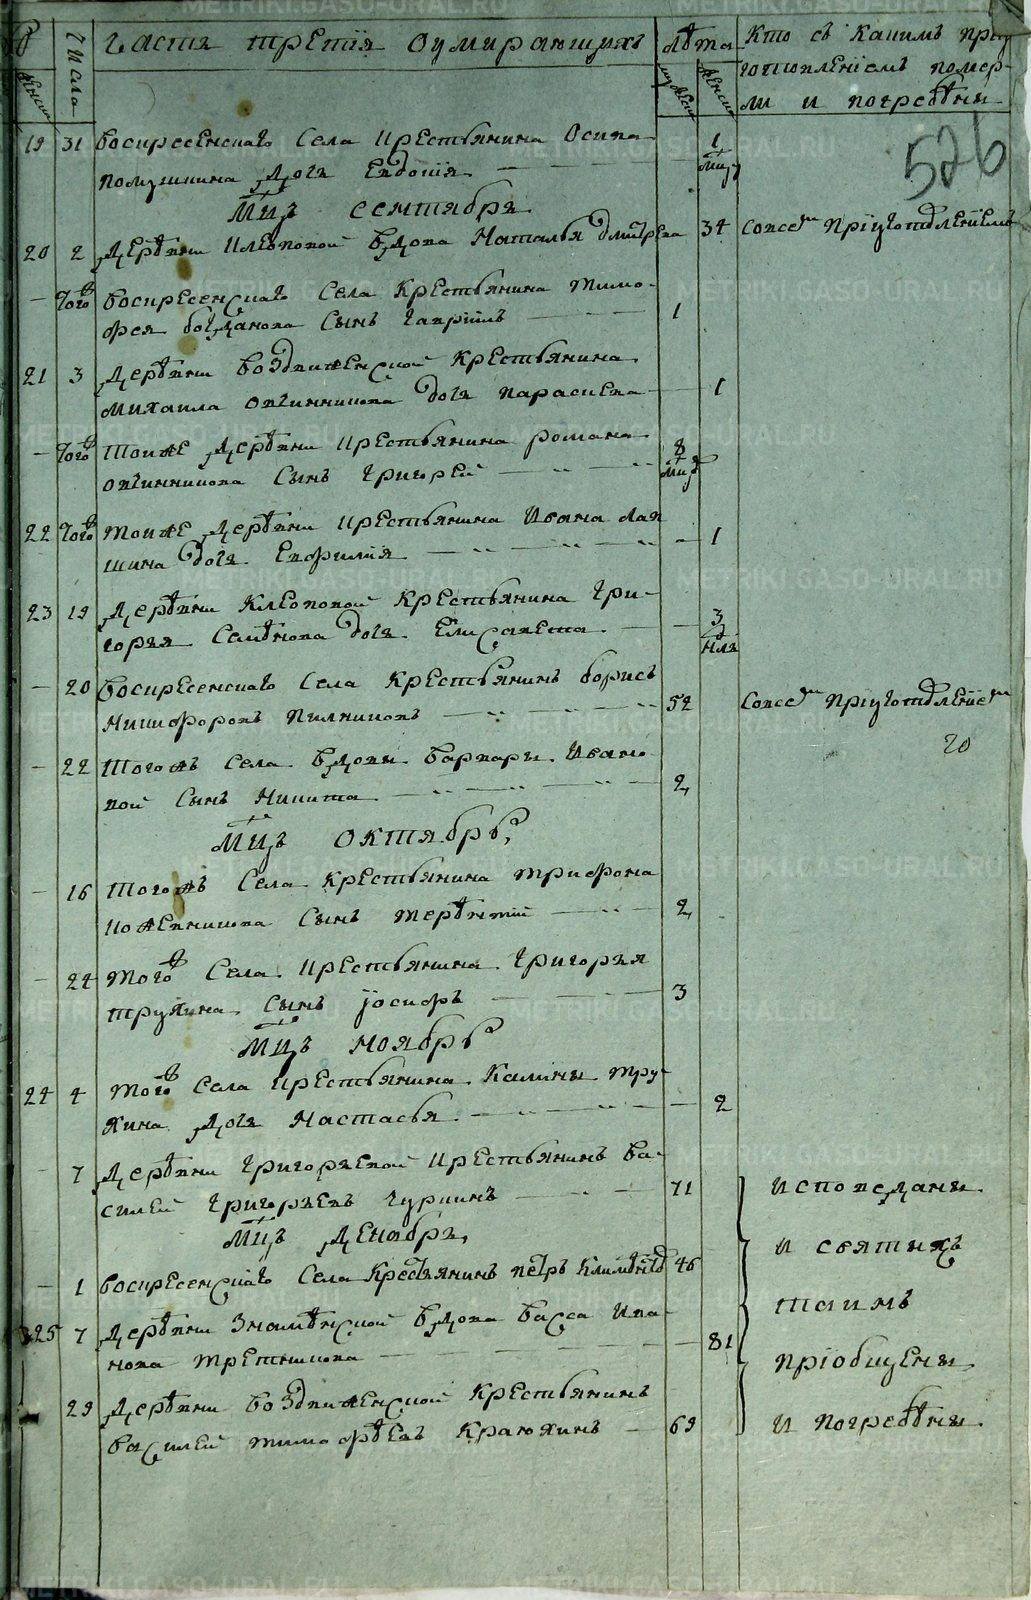 Числа Часть третїя оумирающихъ Лѣта Кто съ какимъ прї
женска мужеска женска уготовленїемъ помер-
ли и погребены
526
19 31 Воскресенскаго Села крестьянина Осипа 1
Полушкина дочь Евдокїя мцъ
Мцъ Сентябрь
20 2 Деревни Клеопиной вдова Наталья Дмитрева 34 Со всемъ прїуготовленїемъ
— того Воскресенскаго Села крестьянина Тимо-
фея Богданова Сынъ Гаврїилъ 1
21 3 Деревни Воздвиженской крестьянина
Михаила Овчинникова дочь Парасиева 1
— того Тоиже деревни крестьянина Романа 8
Овчинникова Сынъ Григорей мцъ
22 того Тоиже деревни крестьянина Ивана Лап
шина дочь Евфимїя 1
23 19 Деревни Клеопиной крестьянина Гри- 3
горья Семенова дочь Елисавета нля
— 20 Воскресенскаго Села крестьянинъ Борисъ
Никифоровъ Пилниковъ 52 Со всемъ прїуготовленїем
20
— 22 Тогожъ Села вдовы Варвары Ивано
вой Сынъ Никита 2
Мцъ Октябрь
— 16 Тогожъ Села крестьянина Трифона
Кожевникова Сынъ Терентїй 2
— 24 Того Села крестьянина Григорья
Трухина Сынъ Їосифъ 3
Мцъ Ноябрь
24 4 Того Села крестьянина Калины Тру-
хина дочь Настасья 2
7 Деревни Григорьевой крестьянинъ Ва-
силей Григорьевъ Чуркинъ 71 исповеданы
Мцъ Декабрь
и святыхъ
— 1 Воскресенскаго Села крестьянинъ Петръ Климентов 46
таинъ
25 7 Деревни Знаменской вдова Васса Ива-
нова Третникова 81
прїобщены
29 Деревни Воздвиженской крестьянинъ
Василей Тимофеевъ Краюхинъ 69 и погребены
METRIKI.GASO-URAL.RU